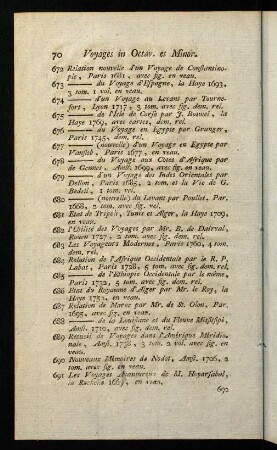 70 Voyages in Octav. et Minor.
672 Relation nouvelle d'un Voyage de Constantino-
ple, Paris 1681, avec fig. en veau.
673 —— du Voyage d'Espagne, la Haye 1693,
3 tom. 1 vol. en veau.
674 —— d'un Voyage au Levant par Tourne-
fort, Lyon 1717, 3 tom. avec fig. dem. rel.
675 —— de l'Isle de Corse par J. Boswel, la
Haye 1769, avec cartes, dem. rel.
676 —— du Voyage en Egypte par Granger,
Paris 1745, dem. rel.
677 —— (nouvelle) d'un Voyage en Egypte par
Vansleb, Paris 1677, en veau.
678 —— du Voyage aux Cotes d'Afrique par
de Gennes, Amst. 1699, avec fig. en veau.
679 —— d'un Voyage des Indes Orientales par
Dellon, Paris 1685, 2 tom. et la Vie de G.
Bedell, 1 tom. rel.
680 —— (nouvelle) du Levant par Poullet, Par.
1668, 2 tom. avec fig. rel.
681 Etat de Tripoli, Tunis et Alger, la Haye 1709,
en veau.
682 l'Utilité des Voyages par Mr. B. de Dairval,
Rouen 1727, 2 tom. avec fig. dem. rel.
683 Les Voyageurs Modernes, Paris 1760, 4 tom.
dem. rel.
684 Relation de l'Afrique Occidentale par le R. P.
Labat, Paris 1728, 5 tom. avec fig. dem. rel.
685 —— de l'Ethiopie Occidentale par le même,
Paris 1732, 5 tom. avec fig. dem. rel.
686 Etat du Royaume d'Alger par Mr. le Roy, la
Haye 1750, en veau.
687 Relation de Maroc par Mr. de St. Olon, Par.
1695, avec fig. en veau.
688 —— de la Louisiane et du Fleuve Missisipi,
Amst. 1720, avec fig. dem. rel.
689 Recueil de Voyages dans l'Amérique Méridio-
nale, Amst. 1738, 3 tom. 2 vol. avec fig. en
veau.
690 Nouveaux Mémoires de Nodot, Amst. 1706, 2
tom. avec fig. en veau.
691 Les Voyages Avantureux de M. Hoyarsabal,
la Rochelle en veau.
692